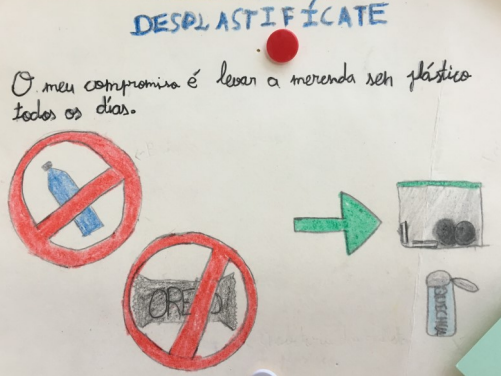 DESPLASTIFÍCATE
O meu compromiso é levar a merenda sen plástico
todos os días.
OREO